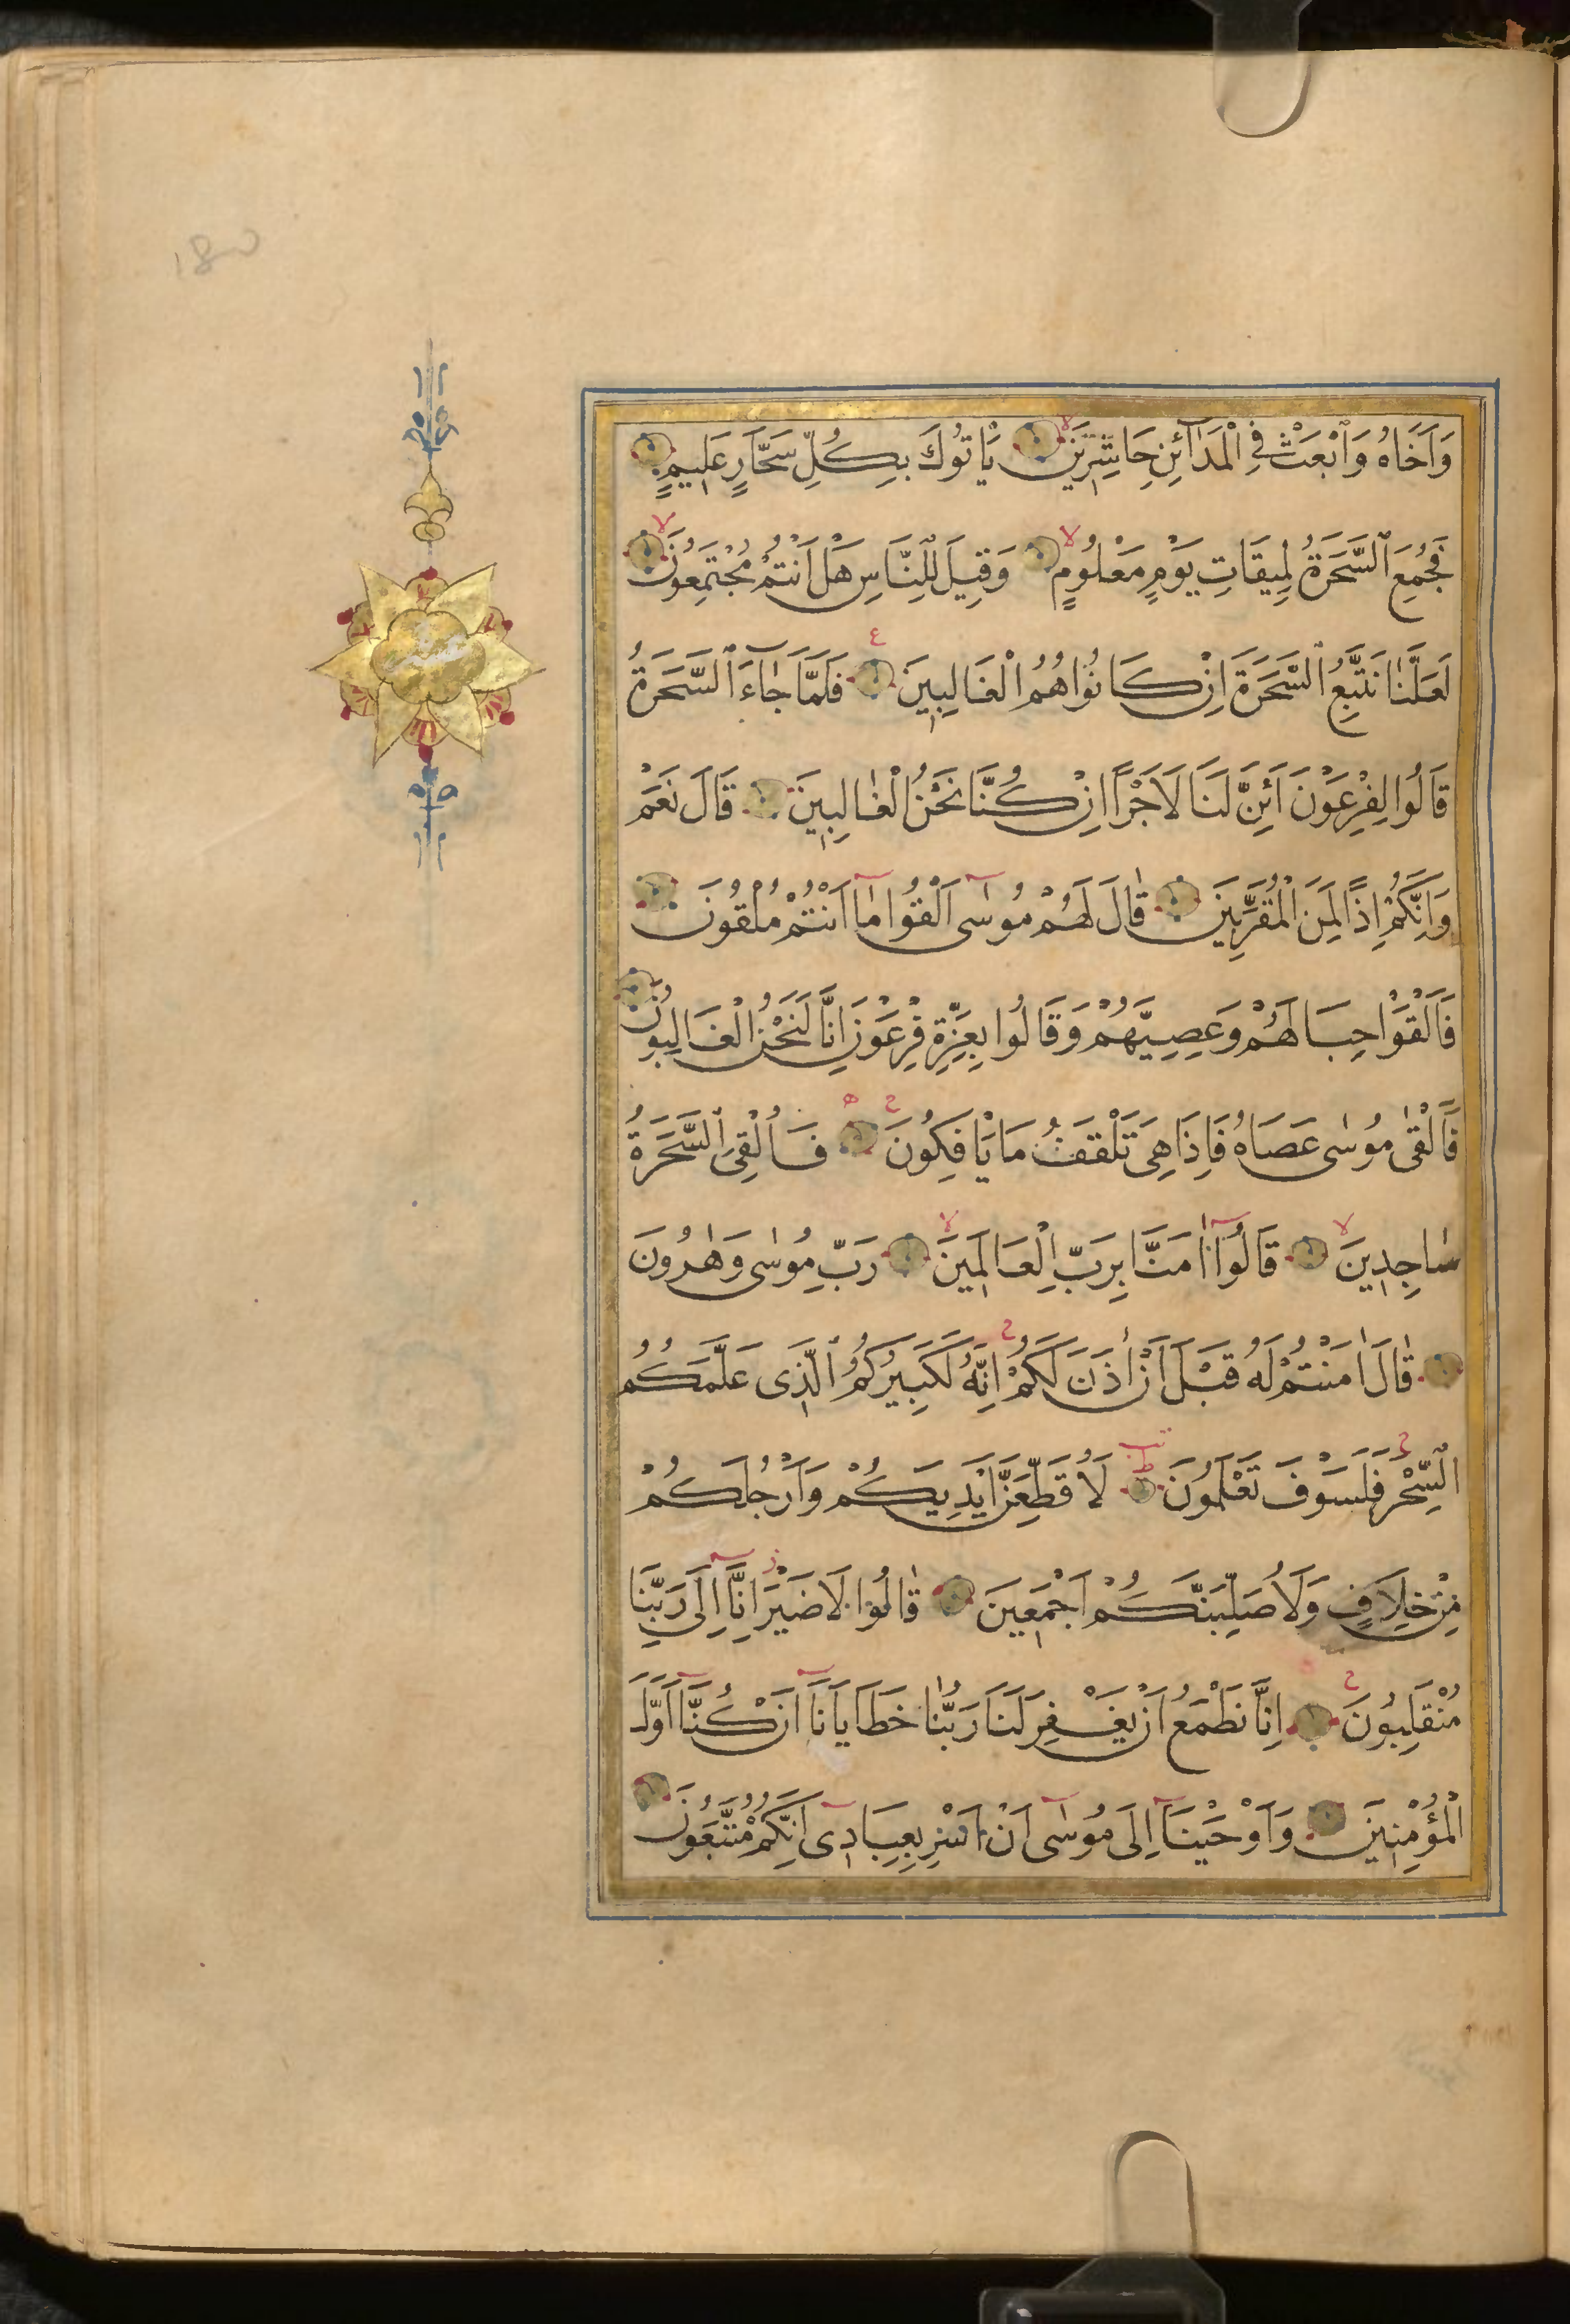 وَاَخَاهُ وَابْعَثْ فِي الْمَدَآئِنِ حَاشِرِينَ يَاْتُوكَ بِكُلِّ سَحَّارٍ عَلِيمٍ
فَجُمِعَ السَّحَرَةُ لِمِيقَاتِ يَوْمٍ مَعْلُومٍ وَقِيلَ لِلنَّاسِ هَلْ اَنْتُمْ مُجْتَمِعُونَ
لَعَلَّنَا نَتَّبِعُ السَّحَرَةَ اِنْ كَانُوا هُمُ الْغَالِبِينَ فَلَمَّا جَآءَ السَّحَرَةُ
قَالُوا لِفِرْعَوْنَ اَئِنَّ لَنَا لَاَجْرًا اِنْ كُنَّا نَحْنُ الْغَالِبِينَ قَالَ نَعَمْ
وَاِنَّكُمْ اِذًا لَمِنَ الْمُقَرَّبِينَ قَالَ لَهُمْ مُوسٰٓى اَلْقُوا مَٓا اَنْتُمْ مُلْقُونَ
فَاَلْقَوْا حِبَالَهُمْ وَعَصِيَّهُمْ وَقَالُوا بِعِزَّةِ فِرْعَوْنَ اِنَّا لَنَحْنُ الْغَالِبُونَ
فَاَلْقٰى مُوسٰى عَصَاهُ فَاِذَا هِيَ تَلْقَفُ مَا يَاْفِكُونَ فَاُلْقِيَ السَّحَرَةُ
سَاجِدِينَ قَالُوٓا اٰمَنَّا بِرَبِّ الْعَالَمِينَ رَبِّ مُوسٰى وَهٰرُونَ
قَالَ اٰمَنْتُمْ لَهُ قَبْلَ اَنْ اٰذَنَ لَكُمْ اِنَّهُ لَكَبِيرُكُمُ الَّذِى عَلَّمَكُمُ
السِّحْرَ فَلَسَوْفَ تَعْلَمُونَ لَاُقَطِّعَنَّ اَيْدِيَكُمْ وَاَرْجُلَكُمْ
مِنْ خِلَافٍ وَلَاُصَلِّبَنَّكُمْ اَجْمَعِينَ قَالُوا لَا ضَيْرَ اِنَّٓا اِلٰى رَبِّنَا
مُنْقَلِبُونَ اِنَّا نَطْمَعُ اَنْ يَغْفِرَ لَنَا رَبُّنَا خَطَايَانَٓا اَنْ كُنَّٓا اَوَّلَ
الْمُؤْمِنِينَ وَاَوْحَيْنَٓا اِلٰى مُوسٰٓى اَنْ اَسْرِ بِعِبَادِىٓ اِنَّكُمْ مُتَّبَعُونَ